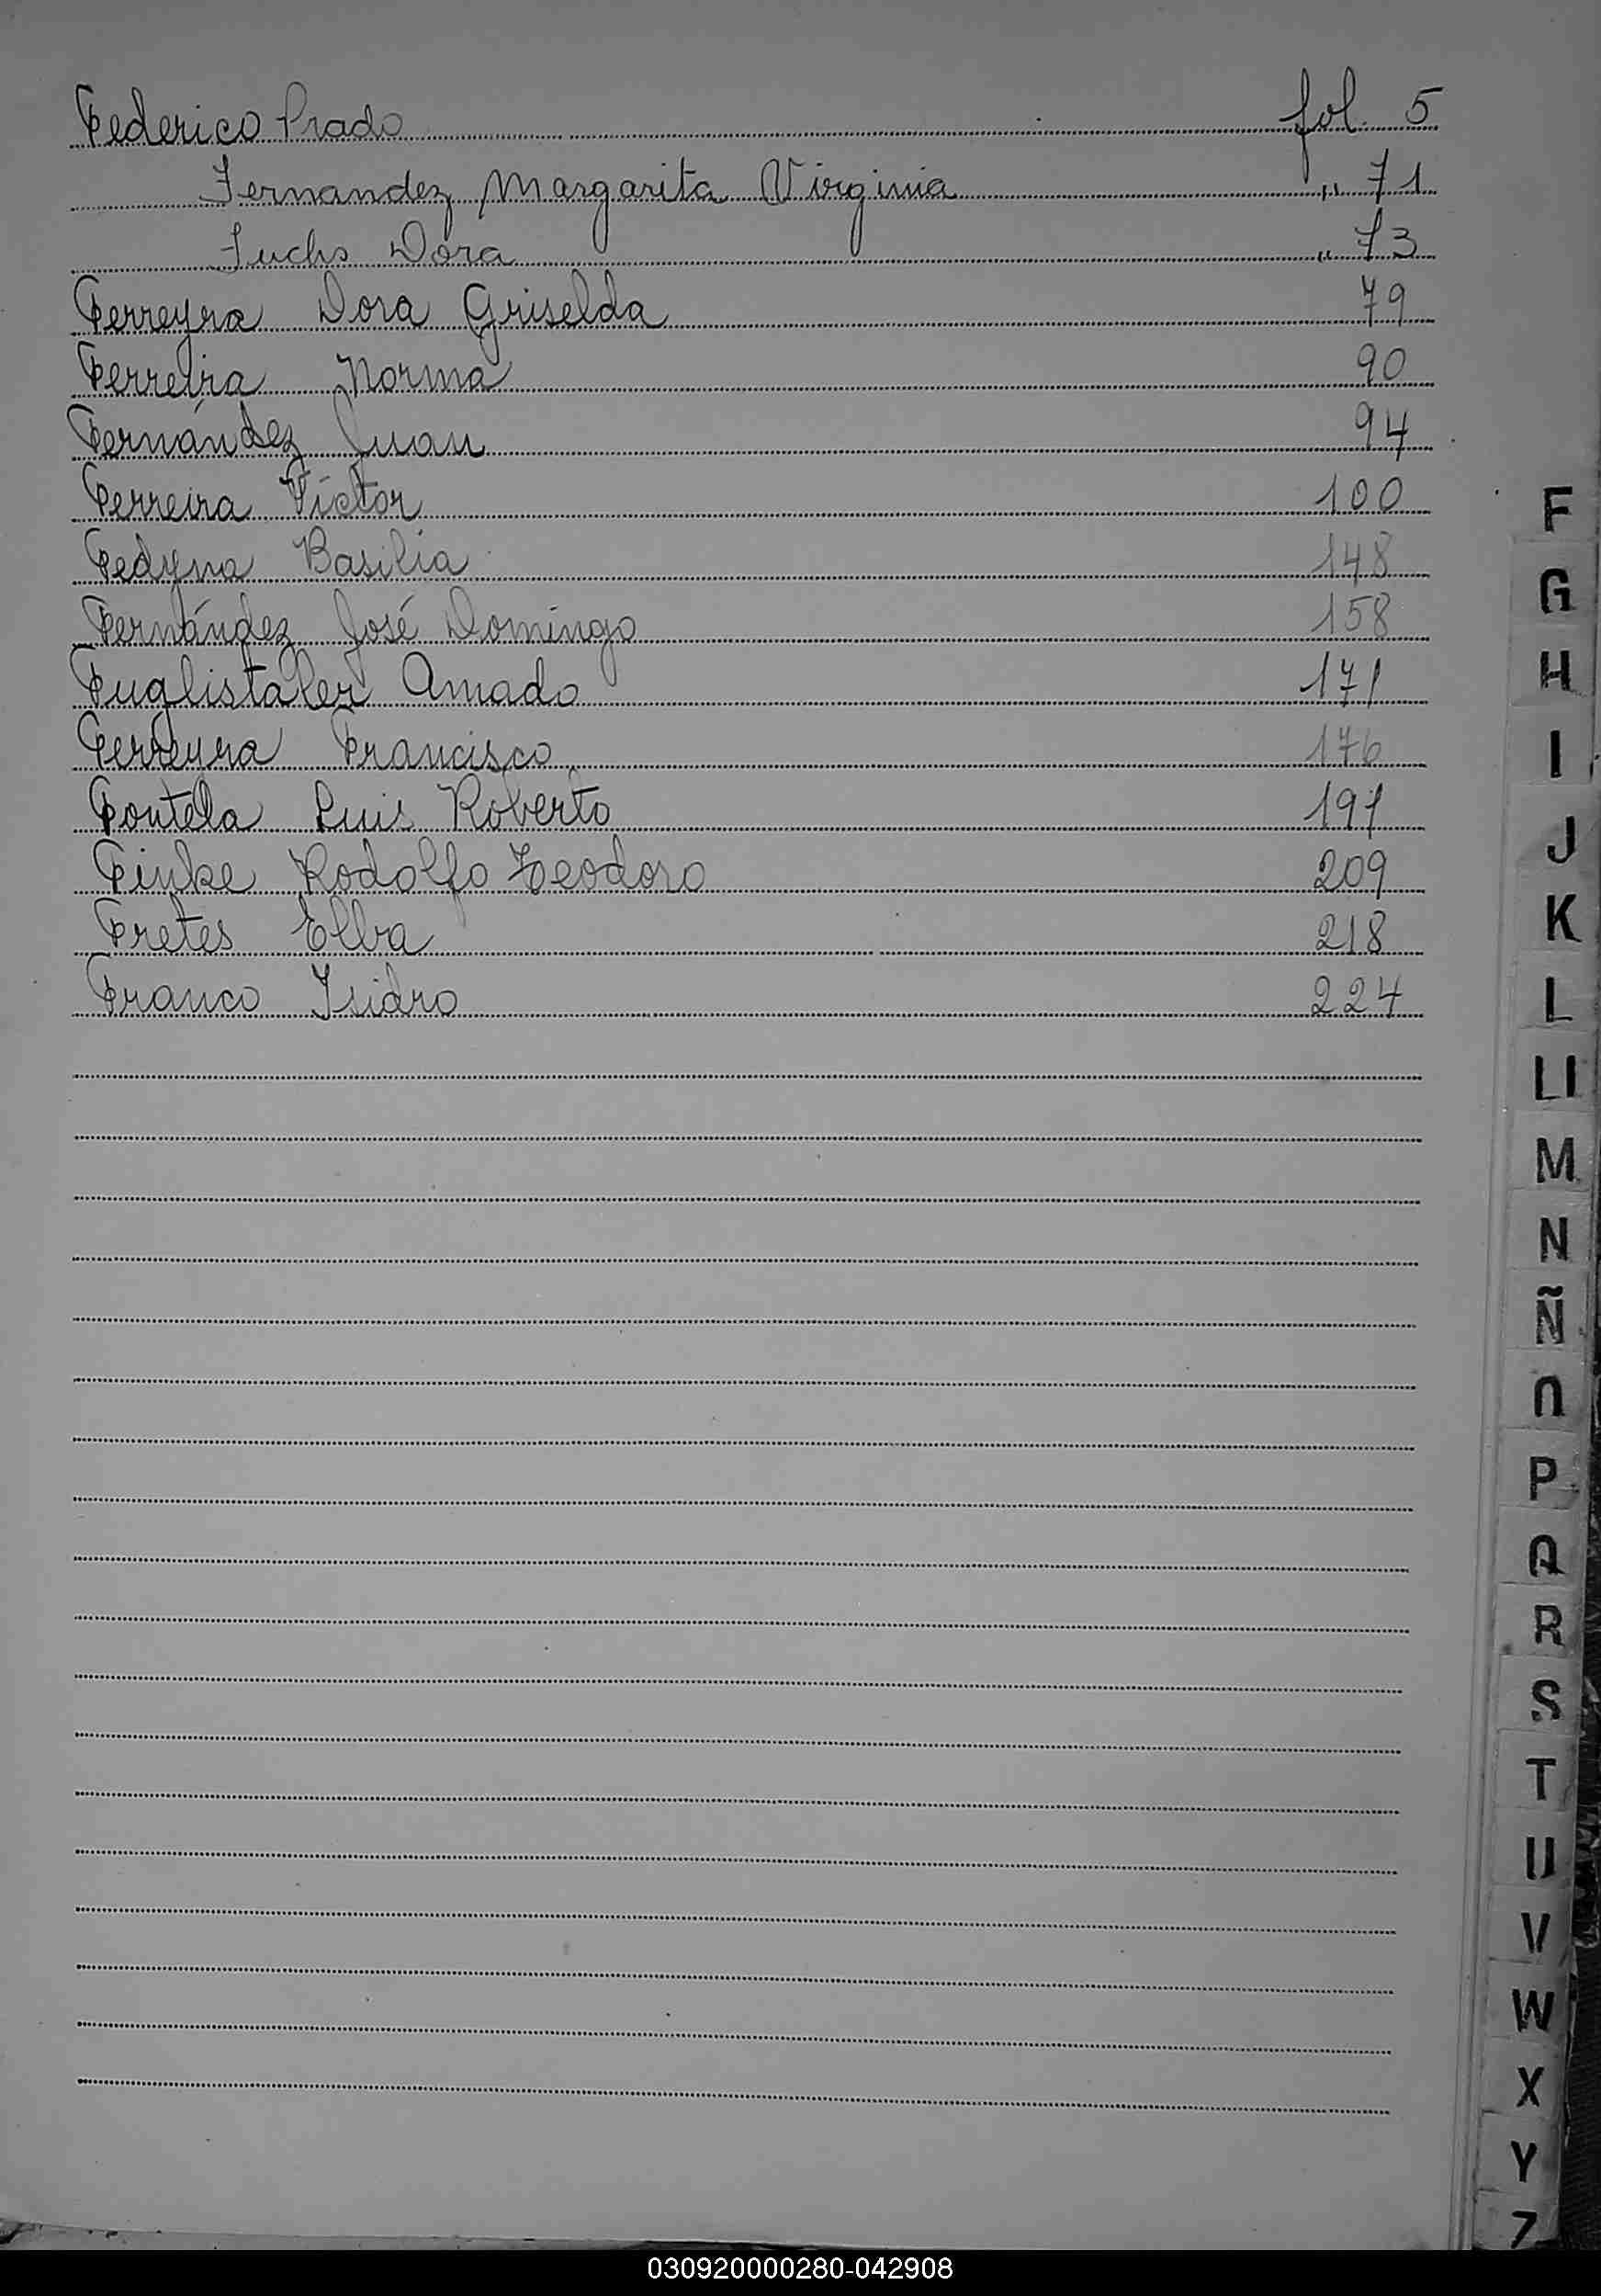 Federico Prado fol. 5
Fernandez Margarita Virginia " 71
Fuchs Dora " 73
Ferreyra Dora Griselda 79
Ferreira Norma 90
Fernández Juan 94
Ferreira Víctor 100
Fedyna Basilia 148
Fernández José Domingo 158
Fuglistaler Amado 171
Ferreyra Francisco 176
Fontela Luis Roberto 191
Finke Rodolfo Teodoro 209
Fretes Elba 218
Franco Isidro 224
F
G
H
I
J
K
L
Ll
M
N
Ñ
O
P
Q
R
S
T
U
V
W
X
Y
Z
030920000280-042908